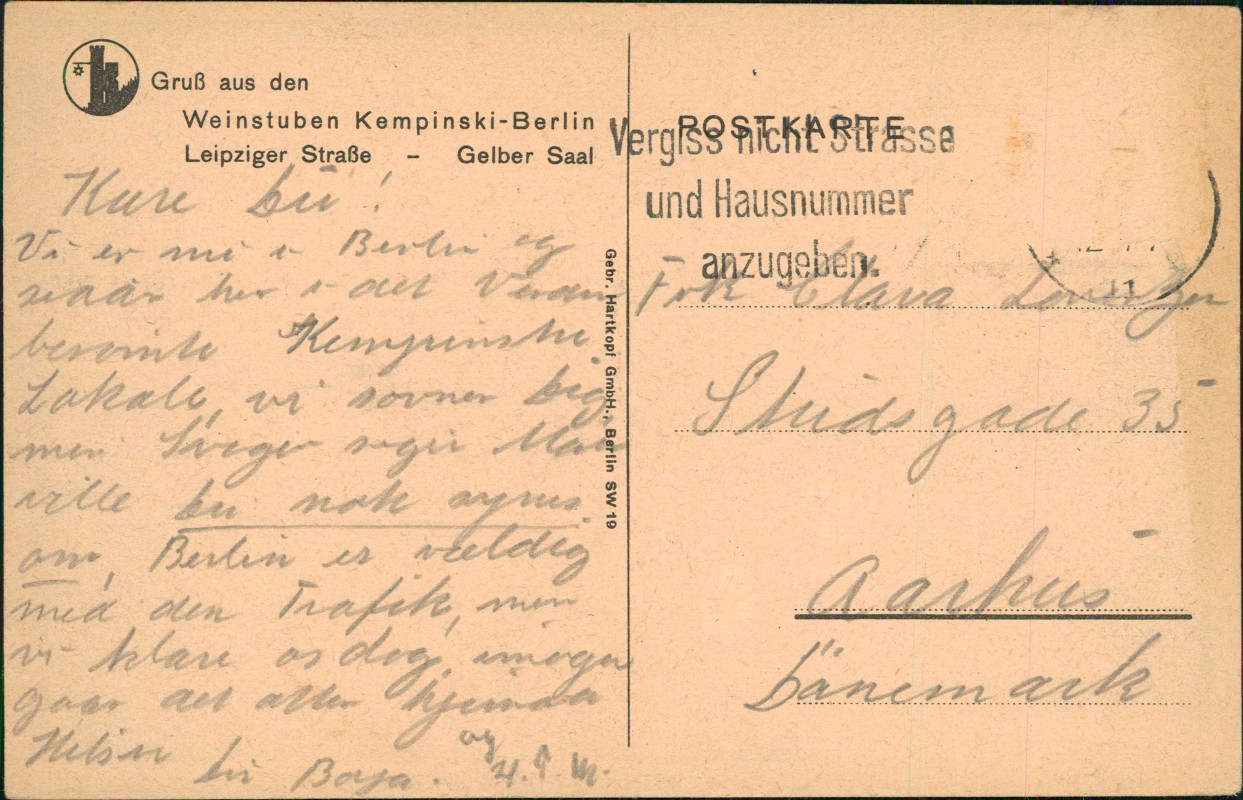 Gruß aus den
Weinstuben Kempinski-Berlin
Leipziger Straße – Gelber Saal
Kære
Vi er nu i Berlin og
her i det Verdens
berømte Kempinski
Lokale, vi savner Dig,
min Svoger siger Man
vilde nok synes
om, Berlin er vældig
med den Trafik, men
vi klare os dog, imorgen
gaar det atter hjemad
Hilsen
og
Gebr. Hartkopf GmbH., Berlin SW 19
POSTKARTE
Vergiss nicht Strasse
und Hausnummer
anzugeben.
11
Frk Clara
Studsgade 35
Aarhus
Dänemark